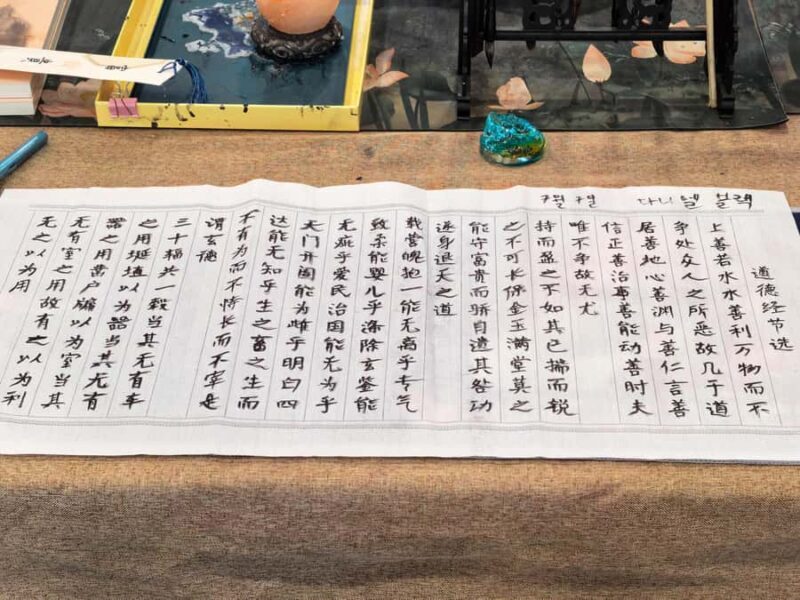 다니엘 블랙
7월 7일
道德经节选
上善若水水善利万物而不
争处众人之所恶故几于道
居善地心善渊与善仁言善
信正善治事善能动善时夫
唯不争故无尤
持而盈之不如其已揣而锐
之不可长保金玉满堂莫之
能守富贵而骄自遗其咎功
遂身退天之道
载营魄抱一能无离乎专气
致柔能婴儿乎涤除玄鉴能
无疵乎爱民治国能无为乎
天门开阖能为雌乎明白四
达能无知乎生之畜之生而
不有为而不恃长而不宰是
谓玄德
三十辐共一毂当其无有车
之用埏埴以为器当其无有
器之用凿户牖以为室当其
无有室之用故有之以为利
无之以为用